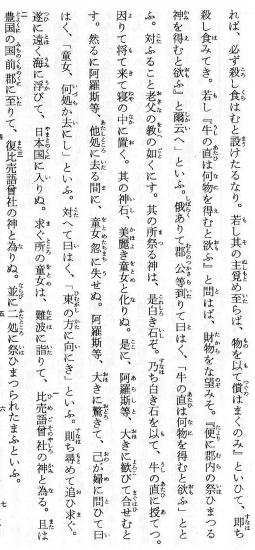 れば、必ず殺し食はむと設けたるなり。若し其の主覓め至らば、物を以て償はまくのみ」といひて、即ち
殺し食みてき。若し『牛の直は何物を得むと欲ふ』と問はば、財物をな望みそ。『便に郡内の祭ひまつる
神を得むと欲ふ』と爾云へ」といふ。俄ありて郡公等到りて曰はく、「牛の直は何物を得むと欲ふ」とと
ふ。対ふること老父の教の如くにす。其の所祭る神は、是白き石ぞ。乃ち白き石を以て、牛の直に授てつ。
因りて将て来て寝の中に置く。其の神石、美麗き童女と化りぬ。是に、阿羅斯等、大きに歓びて合せむと
す。然るに阿羅斯等、他処に去る間に、童女忽に失せぬ。阿羅斯等、大きに驚きて、己が婦に問ひて曰
はく、「童女、何処か去にし」といふ。対へて曰はく、「東の方に向にき」といふ。則ち尋めて追ひ求ぐ。
遂に遠く海に浮びて、日本国に入りぬ。求ぐ所の童女は、難波に詣りて、比売語曽社の神と為る。且は
豊国の国前郡に至りて、復比売語曽社の神と為りぬ。並に二処に祭ひまつられたまふといふ。
三
六
七